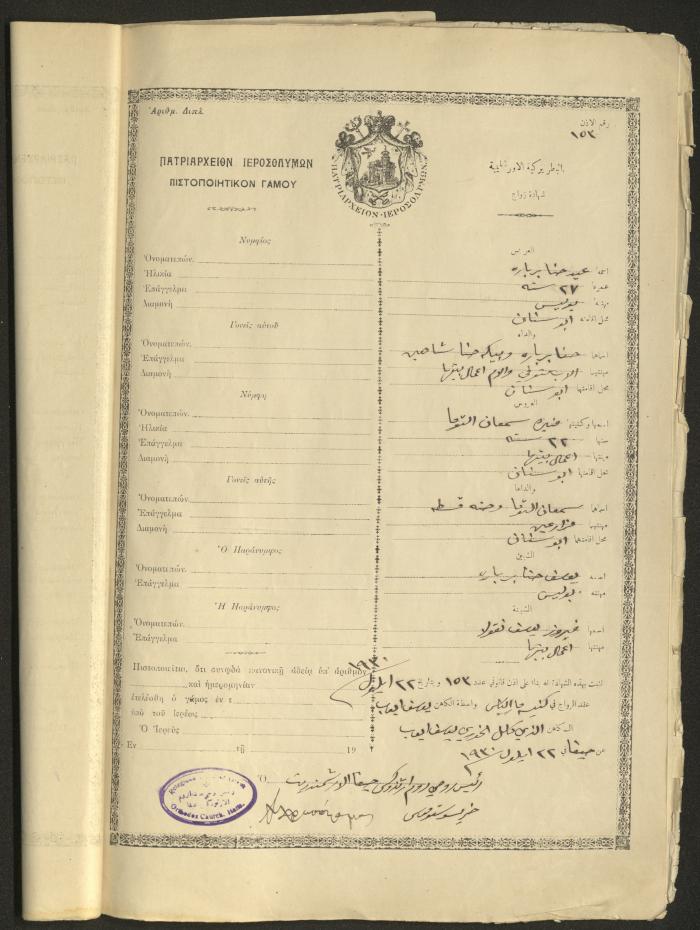 Ἀριθμ. Διπλ.
رقم الاذن
١٥٣
ΠΑΤΡΙΑΡΧΕΙΟΝ ΙΕΡΟΣΟΛΥΜΩΝ
ΠΙΣΤΟΠΟΙΗΤΙΚΟΝ ΓΑΜΟΥ
ΠΑΤΡΙΑΡΧΕΙΟΝ·ΙΕΡΟΣΟΛΥΜΩΝ
البطريركية الاورشليمية
شهادة زواج
Νυμφίος
Ὀνοματεπών.
Ἡλικία
Ἐπάγγελμα
Διαμονή
Γονεῖς αὐτοῦ
Ὀνοματεπών.
Ἐπάγγελμα
Διαμονή
Νύμφη
Ὀνοματεπών.
Ἡλικία
Ἐπάγγελμα
Διαμονή
Γονεῖς αὐτῆς
Ὀνοματεπών.
Ἐπάγγελμα
Διαμονή
Ὁ Παράνυμφος
Ὀνοματεπών.
Ἐπάγγελμα
Ἡ Παράνυμφος
Ὀνοματεπών.
Ἐπάγγελμα
Πιστοποιεῖται, ὅτι συνῳδὰ κανονικῇ ἀδείᾳ ὑπ' ἀριθμὸν
καὶ ἡμερομηνίαν
ἐτελέσθη ὁ γάμος ἐν τ
ὑπὸ τοῦ Ἱερέως
Ὁ Ἱερεὺς
Ἐν τῇ 19
العريس
اسمه عيد حنا برباره
عمره ٢٧ سنة
مهنته بوليس
محل اقامته ابو سنان
والداه
اسماها حنا برباره و حنا شاهين
مهنتهما اعمال بيتها
محل اقامتهما ابو سنان
العروس
اسمها وكنيتها منيره سمعان
سنها ٢٢ سنة
مهنتها اعمال بيتها
محل اقامتها ابو سنان
والداها
اسماها سمعان وحنه
مهنتهما مزارعين
محل اقامتهما ابو سنان
الشبين
اسمه يوسف حنا برباره
مهنته بوليس
الشبينة
اسمها فيروز يوسف نقولا
مهنتها اعمال بيتها
١٩٣٠
نثبت بهذه الشهادة انه بناء على اذن قانوني عدد ١٥٣ وبتاريخ ٢٢ ايلول
عقد الزواج في كنيسة بواسطة الكاهن يوسف
الكاهن الخوري يوسف
في حيفا في ٢٢ ايلول ١٩٣٠
رئيس روحي الروم ارثوذكس حيفا الارشمندريت
Ὁ
Orthodox Church, Haifa.